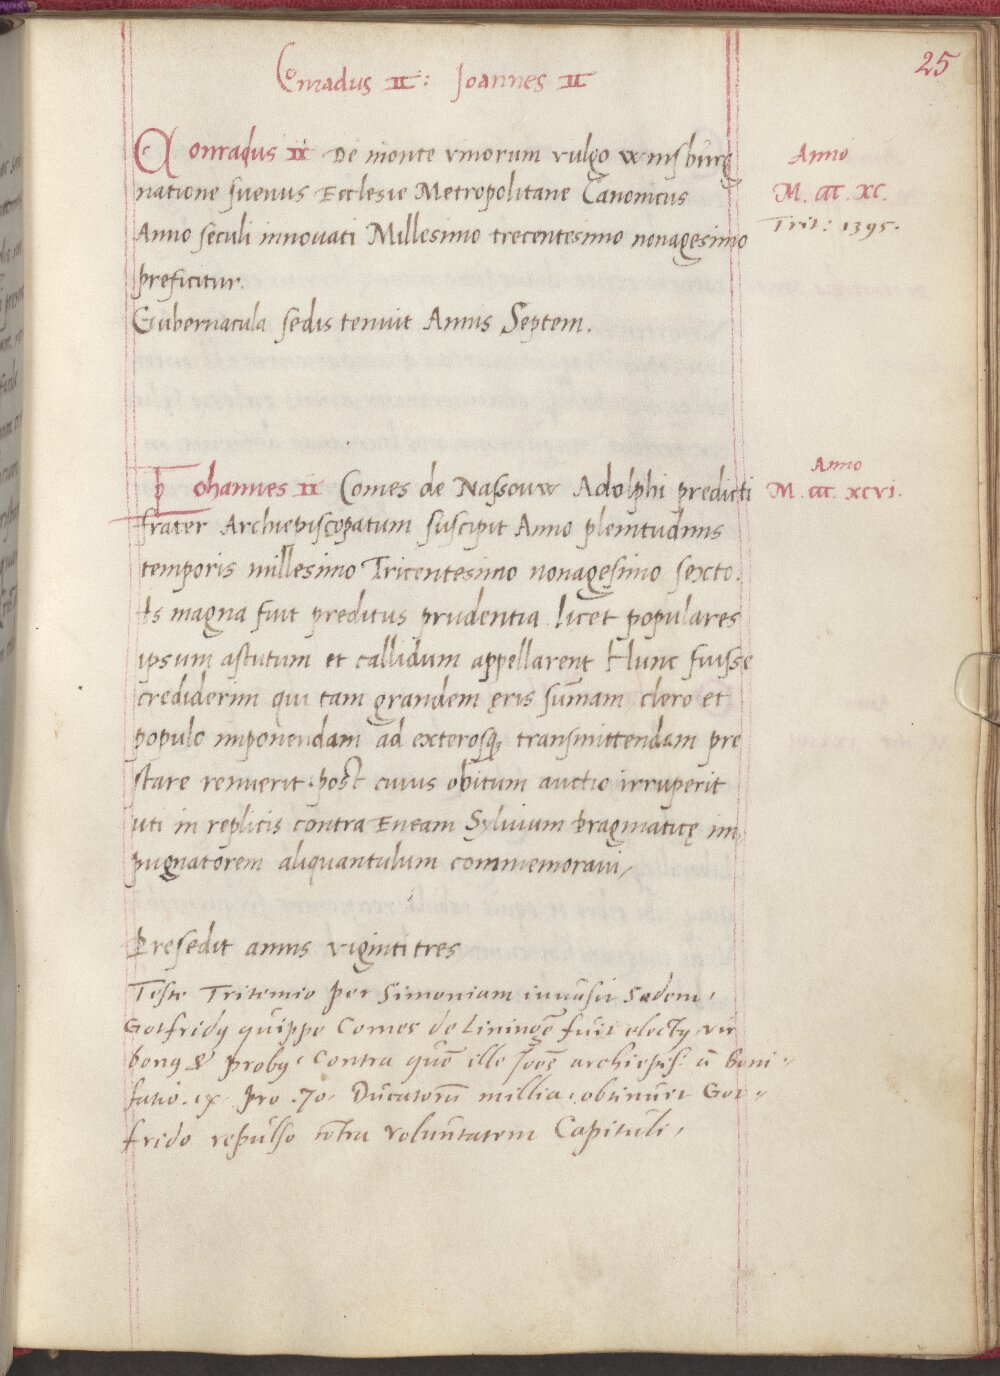 25
Conradus II: Joannes II
Conradus II De monte vinorum vulgo winsburg
Anno
M. CCC. XC.
natione suevus Ecclesie Metropolitane Canonicus
Trit: 1395.
Anno seculi innovati Millesimo trecentesimo nonagesimo
preficitur.
Gubernacula sedis tenuit Annis Septem.
Anno
M. CCC. XCVI.
Johannes II Comes de Nassouw Adolphi predicti
frater Archiepiscopatum suscipit Anno plenitudinis
temporis millesimo Tricentesimo nonagesimo sexto.
Is magna fuit preditus prudentia licet populares
ipsum astutum et callidum appellarent Hunc fuisse
crediderim qui tam grandem ęris sūmam clero et
populo imponendam ad exterosq; transmittendam pre
stare renuerit. post cuius obitum auctio irruperit
uti in replicis contra Eneam Sylvium Pragmaticę im,
pugnatorem aliquantulum commemoravi,
Presedit annis viginti tres
Teste Tritemio per Simoniam invasit Sadem,
Gotfridꝰ quippe Comes de Lininḡe fuit electꝰ, vir
bonꝰ & probꝰ, Contra quē ille Joēs archiepis. ā Boni-
fatio. ix. pro .70. Ducatorū millia, obtinuit Got-
frido repulso cōtra voluntatem Capituli,